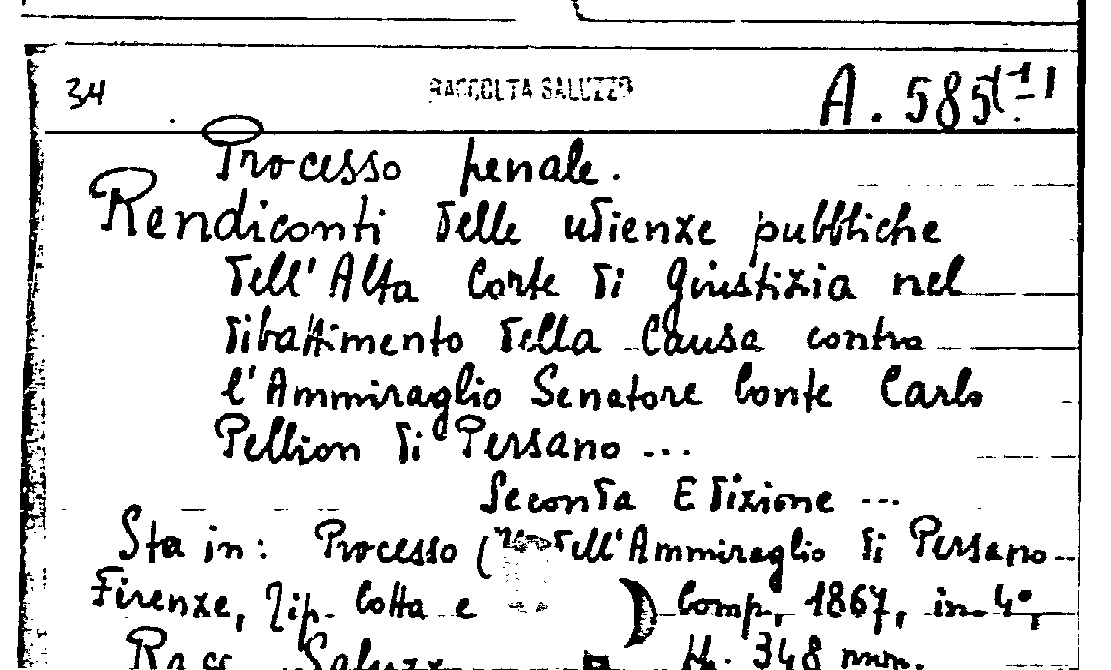 34 RACCOLTA SALUZZO A. 585
Processo penale.
Rendiconti delle udienze pubbliche
dell'Alta Corte di Giustizia nel
dibattimento della Causa contro
l'Ammiraglio Senatore Conte Carlo
Pellion di Persano ...
Seconda Edizione ...
Sta in: Processo ( dell'Ammiraglio di Persano...
Firenze, Tip. Cotta e Comp., 1867, in-4°,
Racc. Saluzzo H. 348 mm.